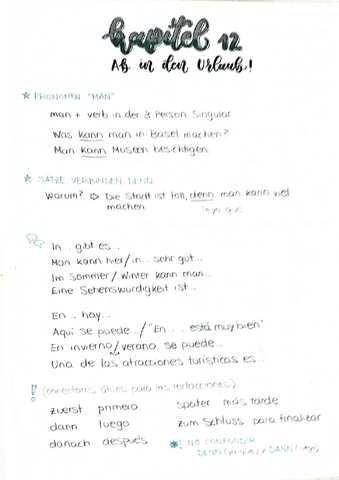 Kapitel 12
Ab in den Urlaub!
PRONOMEN "MAN"
man + verb in der 3 Person Singular
Was kann man in Basel machen?
Man kann Museen besichtigen.
SÄTZE VERBINDEN: DENN
Warum? ⇨ Die Stadt ist toll, denn man kann viel
machen.
↳ya que
In... gibt es...
Man kann hier/in... sehr gut...
Im Sommer/Winter kann man...
Eine Sehenswürdigkeit ist...
En... hay...
Aquí se puede.../"En... está muy bien"
En invierno/verano se puede...
Una de las atracciones turísticas es...
! (conectores útiles para las redacciones)
zuerst primero
dann luego
danach después
später más tarde
zum Schluss para finalizar
*! NO CONFUNDIR
DENN (ya que) ≠ DANN (luego)